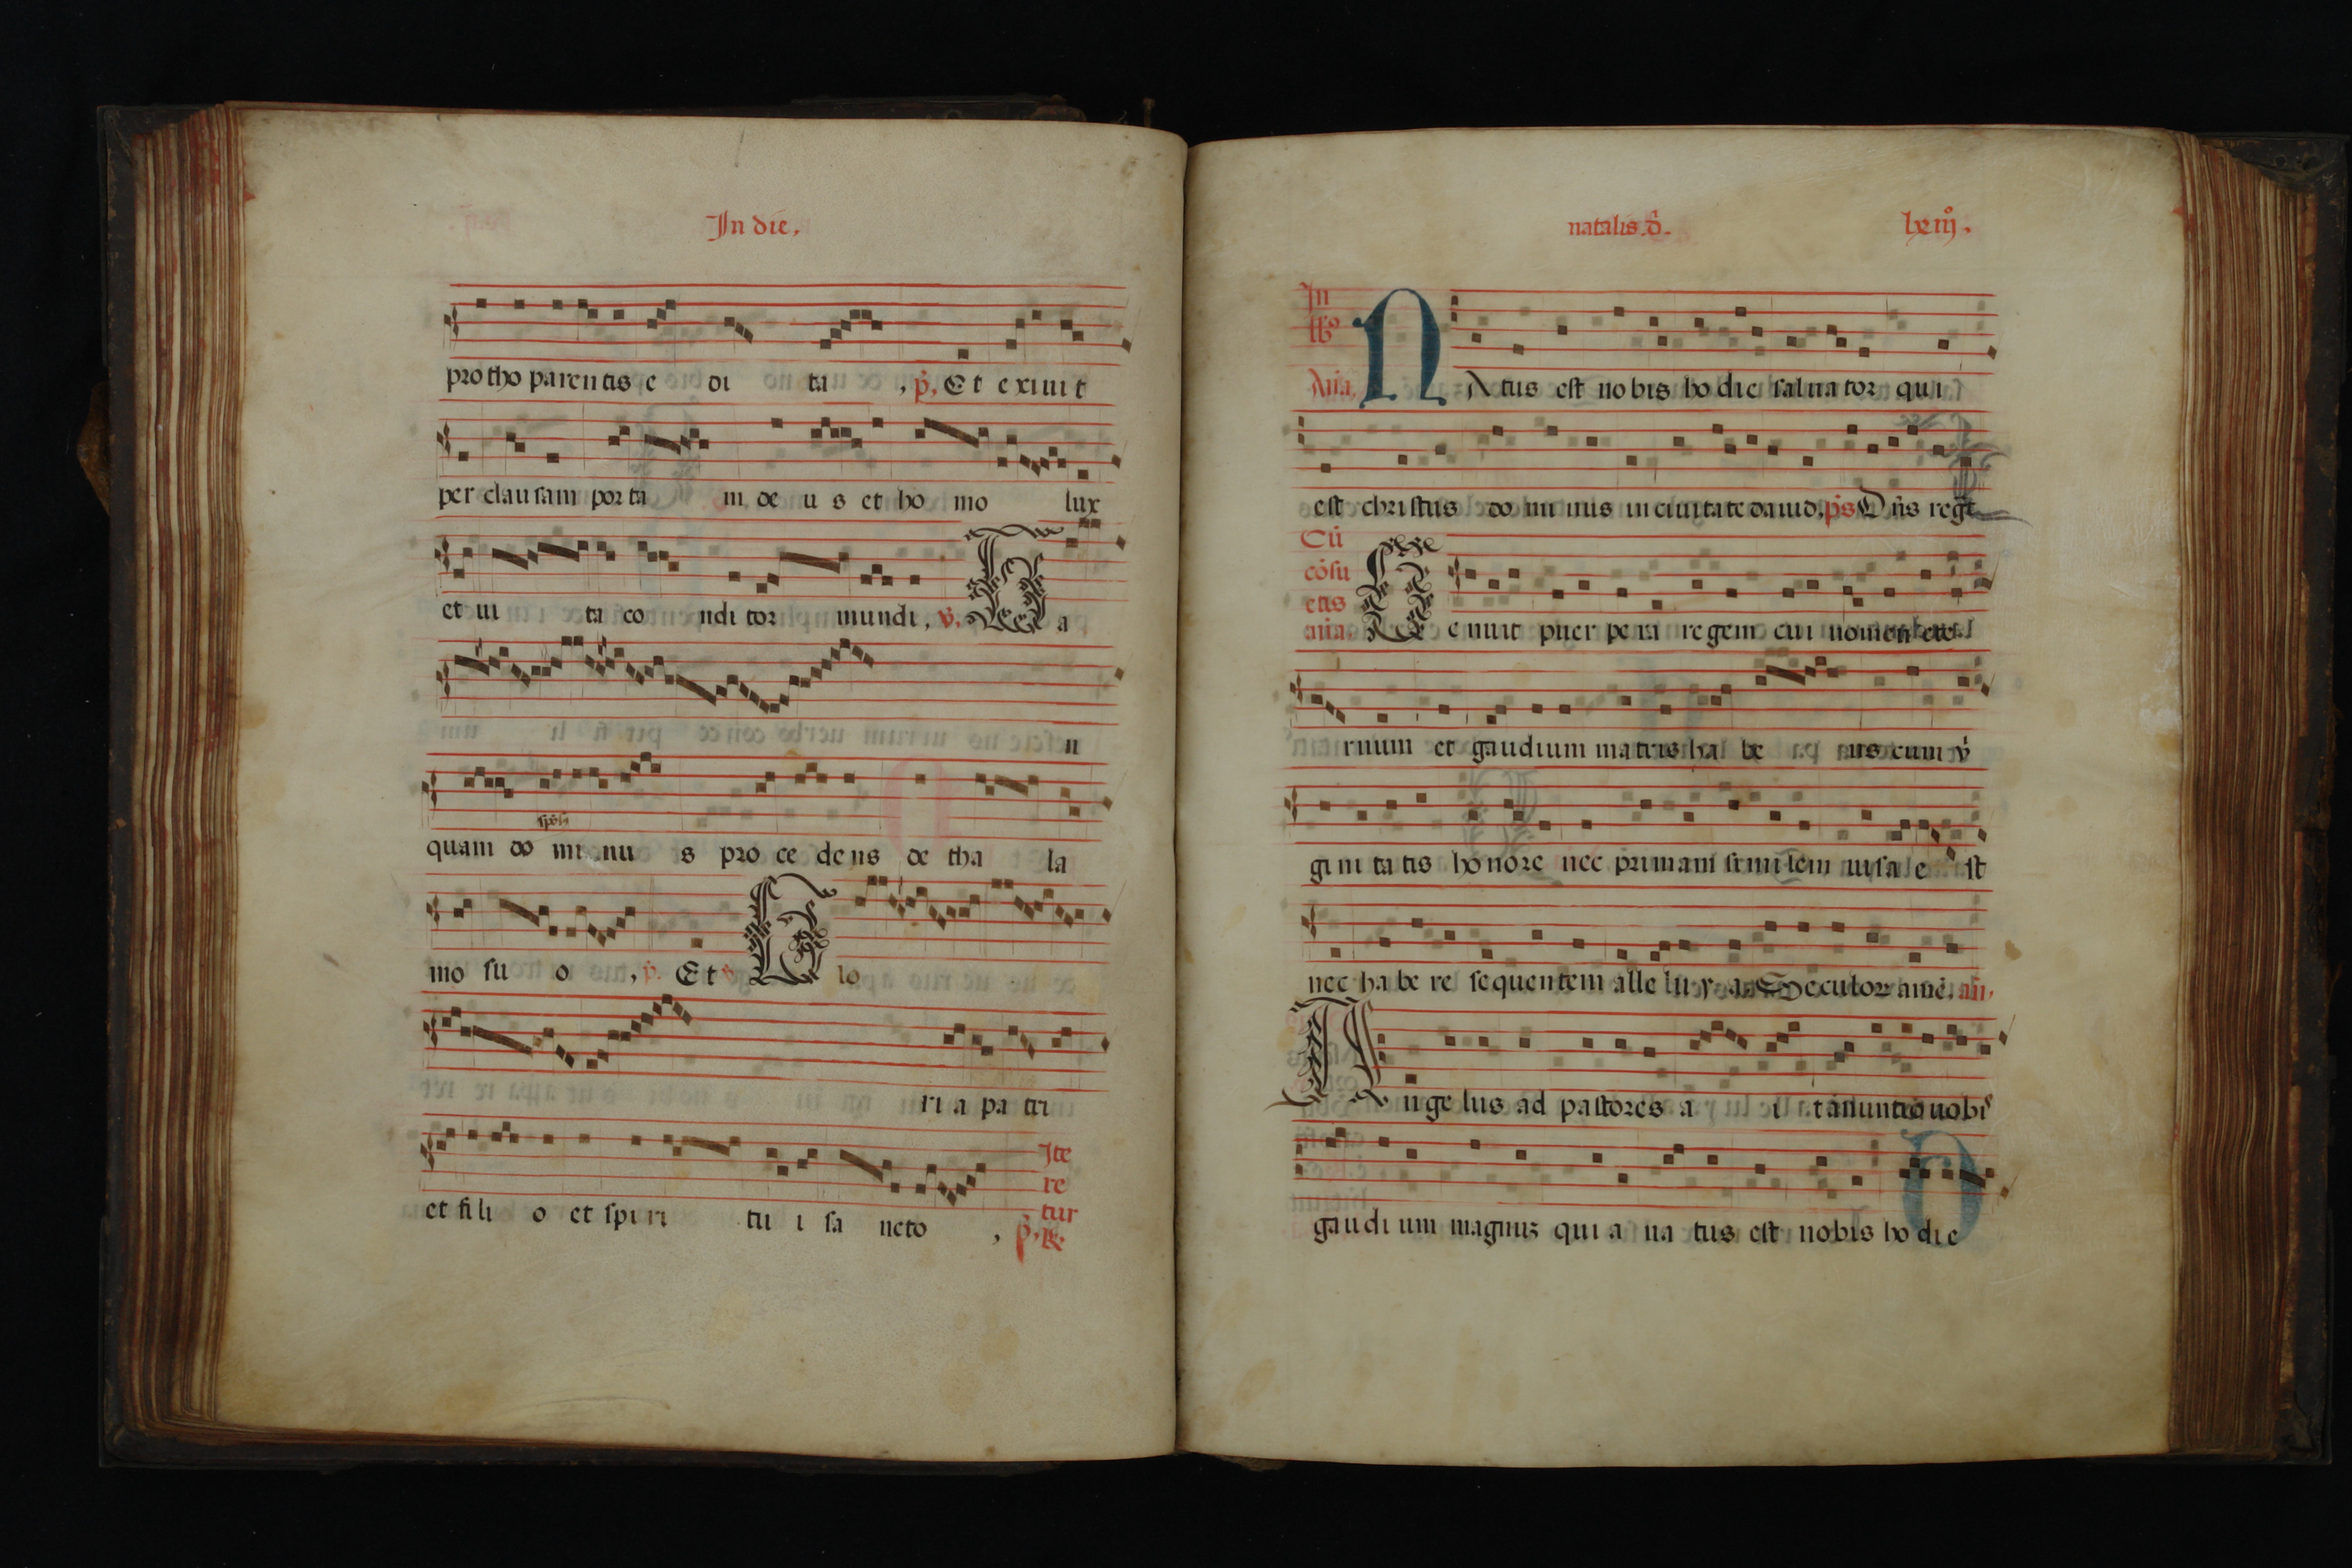 In die.
protho parentis e di ta, p̃. Et exiuit
per clausam porta m de u s et ho mo lux
et ui ta co nditor mundi, v̇. T a
n
quam do mi nu s pro ce dens de tha la
mo su o, p̃. Et v̇. G lo
ri a pa tri
et fili o et spiri tu i sa ncto, p̃.
Ite
re
tur
℟.
natalis. d̃. lxiiȷ̊.
In
Aña. N Atus est nobis hodie saluator qui
est christus do minus in ciuitate dauid. p̃s Dñs regt
Cũ
cõsu
etis
aña. G enuit puerpera regem cui nomen ete
rnum et gaudium matris ha be ns cum v̇
gini tatis honore nec primam similem uisa e st
nec ha be re sequentem alle lu y a. Seculoꝝ amẽ. añ.
A ngelus ad pastores a i t anuntio uobiˢ
gaudi um magnuꝫ qui a na tus est nobis ho die